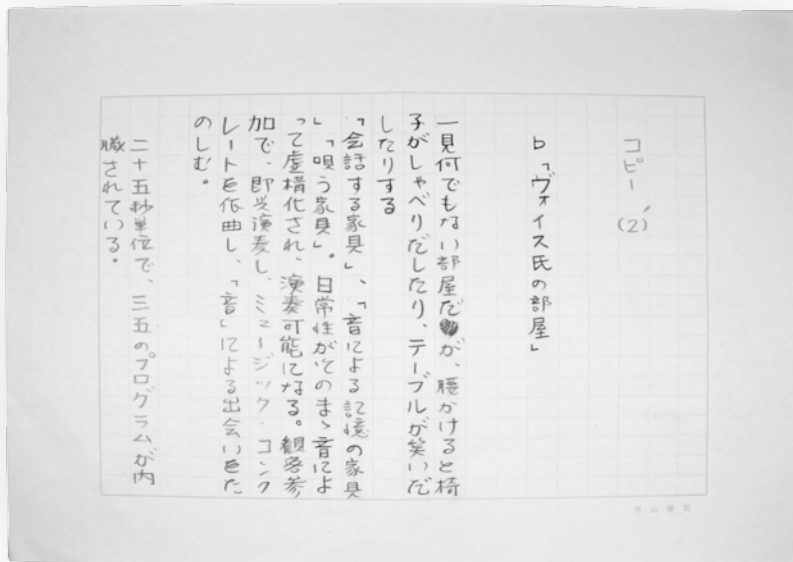 コピー(2)
b「ヴォイス氏の部屋」
一見何でもない部屋だが、腰かけると椅
子がしゃべりだしたり、テーブルが笑いだ
したりする
「会話する家具」、「音による記憶の家具
」「唄う家具」。日常性がそのまゝ音によ
って虚構化され、演奏可能になる。観客参
加で、即興演奏し、ミュージック・コンク
レートを作曲し、「音」による出会いをた
のしむ。
二十五秒単位で、三五のプログラムが内
臓されている。
寺山修司